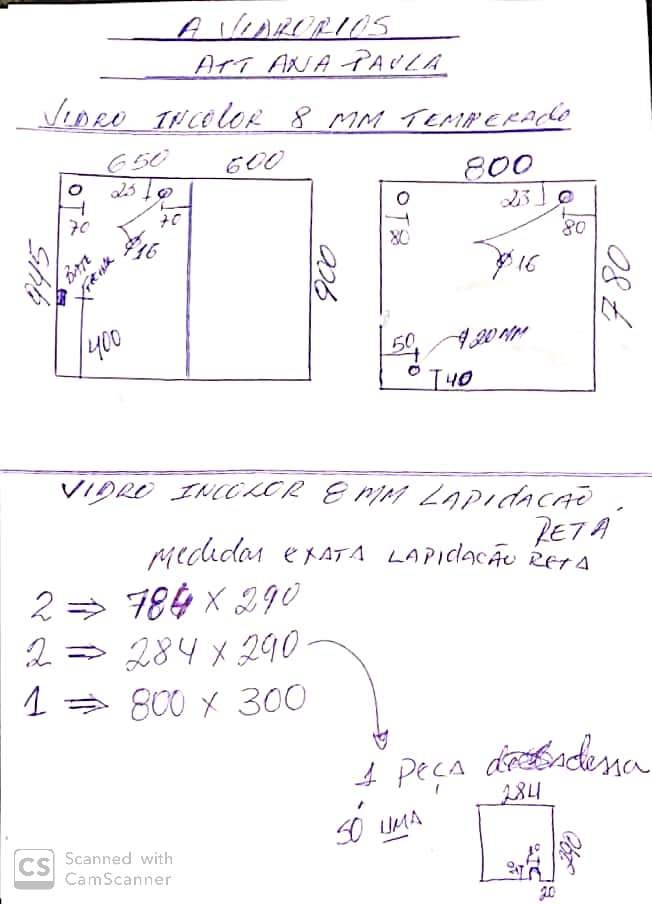 A VIDRORIOS
ATT ANA PAULA
VIDRO INCOLOR 8 MM TEMPERADO
650 600
23
70 70
Ø16
BATE
FECHA
945
400
900
800
23
80 80
Ø16
780
50 Ø20MM
40
VIDRO INCOLOR 8 MM LAPIDACÃO
RETA
Medidas EXATA LAPIDAÇÃO RETA
2 ⇒ 784 X 290
2 ⇒ 284 X 290
1 ⇒ 800 X 300
1 PEÇA dessa
SÓ UMA
284
290
20
CS Scanned with
CamScanner